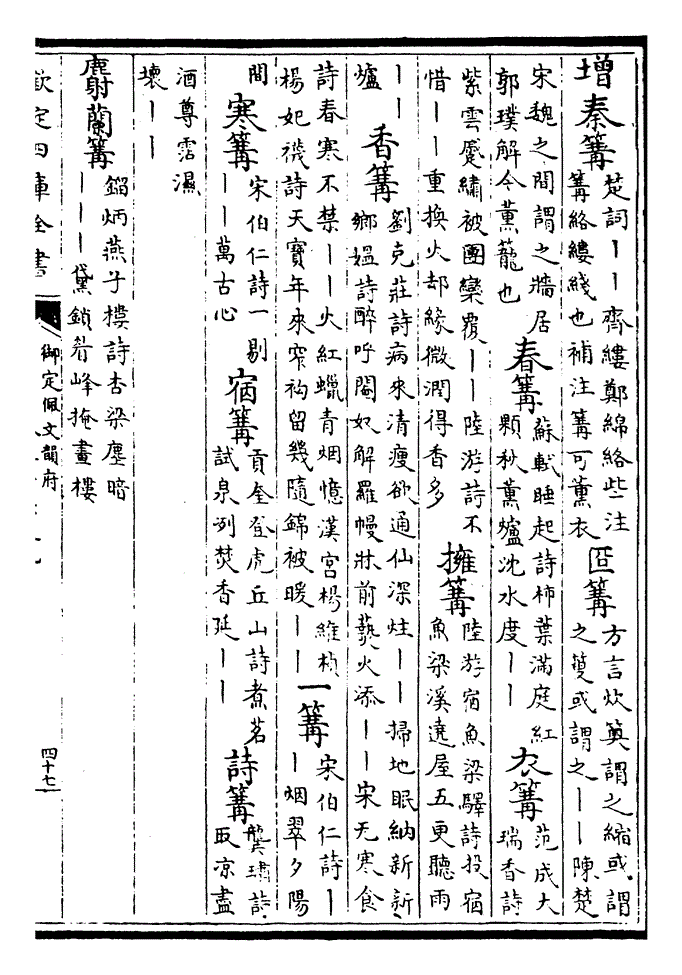 增秦篝
楚詞丨丨齊縷鄭綿絡些注
篝絡縷綫也補注篝可薰衣
篝
方言炊䉛謂之縮或謂
之䉤或謂之丨丨陳楚
宋魏之間謂之牆居
郭璞解今薰籠也
春篝
蘇軾睡起詩柿葉滿庭紅
顆秋薰爐沈水度丨丨
衣篝
范成大
瑞香詩
紫雲蹙繡被團欒覆丨丨陸游詩不
惜丨丨重換火却緣微潤得香多
擁篝
陸游宿魚梁驛詩投宿
魚梁溪遶屋五更聽雨
丨丨
爐
香篝
劉克莊詩病來清瘦欲通仙深炷丨丨掃地眠納新新
鄉媼詩醉呼閽奴解羅幔牀前爇火添丨丨宋无寒食
詩春寒不禁丨丨火紅蠟青烟憶漢宮楊維楨
楊妃襪詩天寶年來窄袎留幾隨錦被暖丨丨
一篝
宋伯仁詩丨
丨烟翠夕陽
間
寒篝
宋伯仁詩一剔
丨丨萬古心
宿篝
貢奎登虎丘山詩煮茗
試泉列焚香延丨丨
詩篝
龔璛詩
取凉盡
酒尊霑濕
壊丨丨
麝蘭篝
鎦炳燕子樓詩杏梁塵暗
丨丨丨黛鎖眉峰掩畫樓
欽定四庫全書
御定佩文韻府
四十七